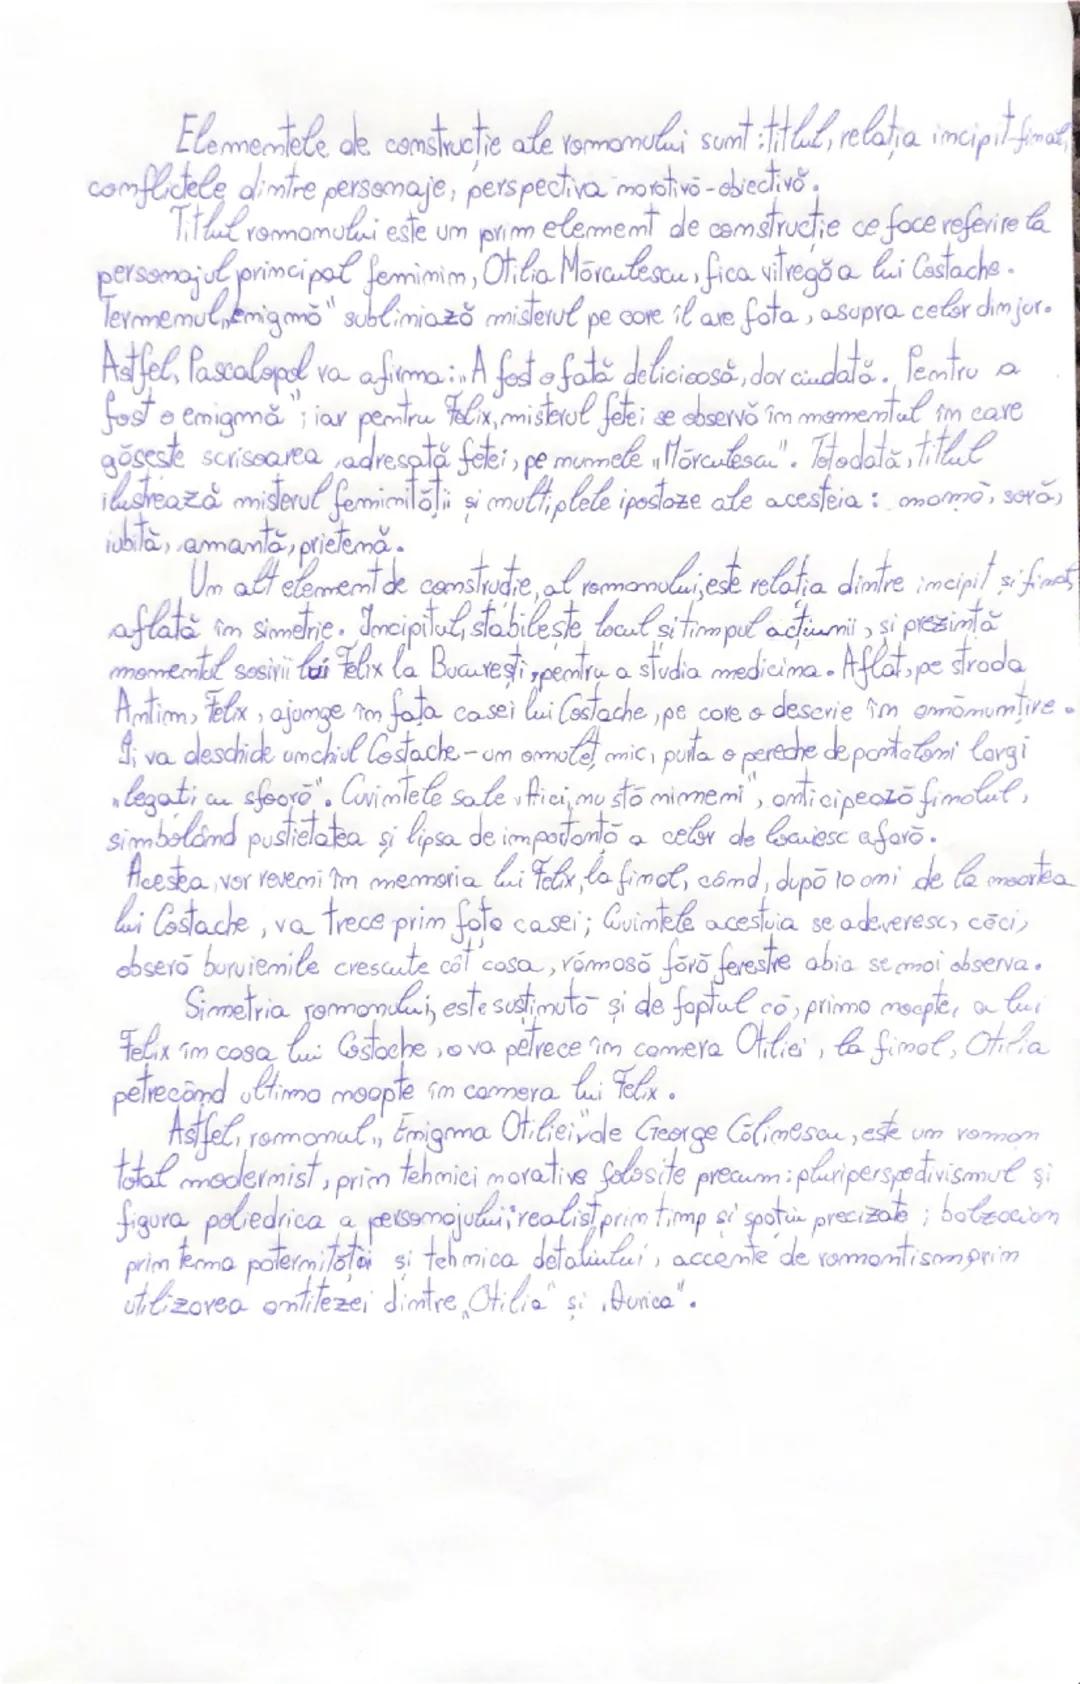 Elementele de construcție ale romanului sunt: titlul, relația incipit-final,
conflictele dintre personaje, perspectiva narativă-obiectivă.
Titlul romanului este un prim element de construcție ce face referire la
personajul principal feminin, Otilia Mărculescu, fica vitregă a lui Costache.
Termemul „enigmă" sublimiază misterul pe care îl are fata, asupra celor din jur.
Astfel, Pascalopol va afirma: „A fost o fată delicioasă, dar ciudată. Pentru a
fost o enigmă"; iar pentru Felix, misterul fetei se observă în momentul în care
găsește scrisoarea adresată fetei, pe numele „Mărculescu". Totodată, titlul
ilustrează misterul feminității și multiplele ipostaze ale acesteia: mamă, soră,
iubită, amantă, prietenă.
Un alt element de construcție, al romanului, este relația dintre incipit și final,
aflată în simetrie. Incipitul, stabilește locul și timpul acțiunii, și prezintă
momentul sosirii lui Felix la București, pentru a studia medicina. Aflat, pe strada
Antim, Felix, ajunge în fața casei lui Costache, pe care o descrie în amănunțire.
Îi va deschide unchiul Costache - un omuleț mic, purta o pereche de pantaloni largi
„legați cu sfoară". Cuvintele sale „Aici, nu stă nimeni", anticipează finalul,
simbolând pustietatea și lipsa de importanță a celor de locuiesc afară.
Acestea, vor reveni în memoria lui Felix, la final, când, după 10 ani de la moartea
lui Costache, va trece prin fața casei; Cuvintele acestuia se adeveresc, căci,
observă buruienile crescute cât casa, rămasă fără ferestre abia se mai observa.
Simetria romanului, este susținută și de faptul că, prima noapte, a lui
Felix în casa lui Costache, o va petrece în camera Otiliei, la final, Otilia
petrecând ultima noapte în camera lui Felix.
Astfel, romanul „Enigma Otiliei" de George Călinescu, este un roman
total modernist, prin tehnici narative folosite precum: pluriperspectivismul și
figura poliedrica a personajului; realist prin timp și spațiu precizate; balzacian
prin tema paternității și tehnica detaliului, accente de romantism prin
utilizarea antitezei dintre „Otilia" și „Aurica".